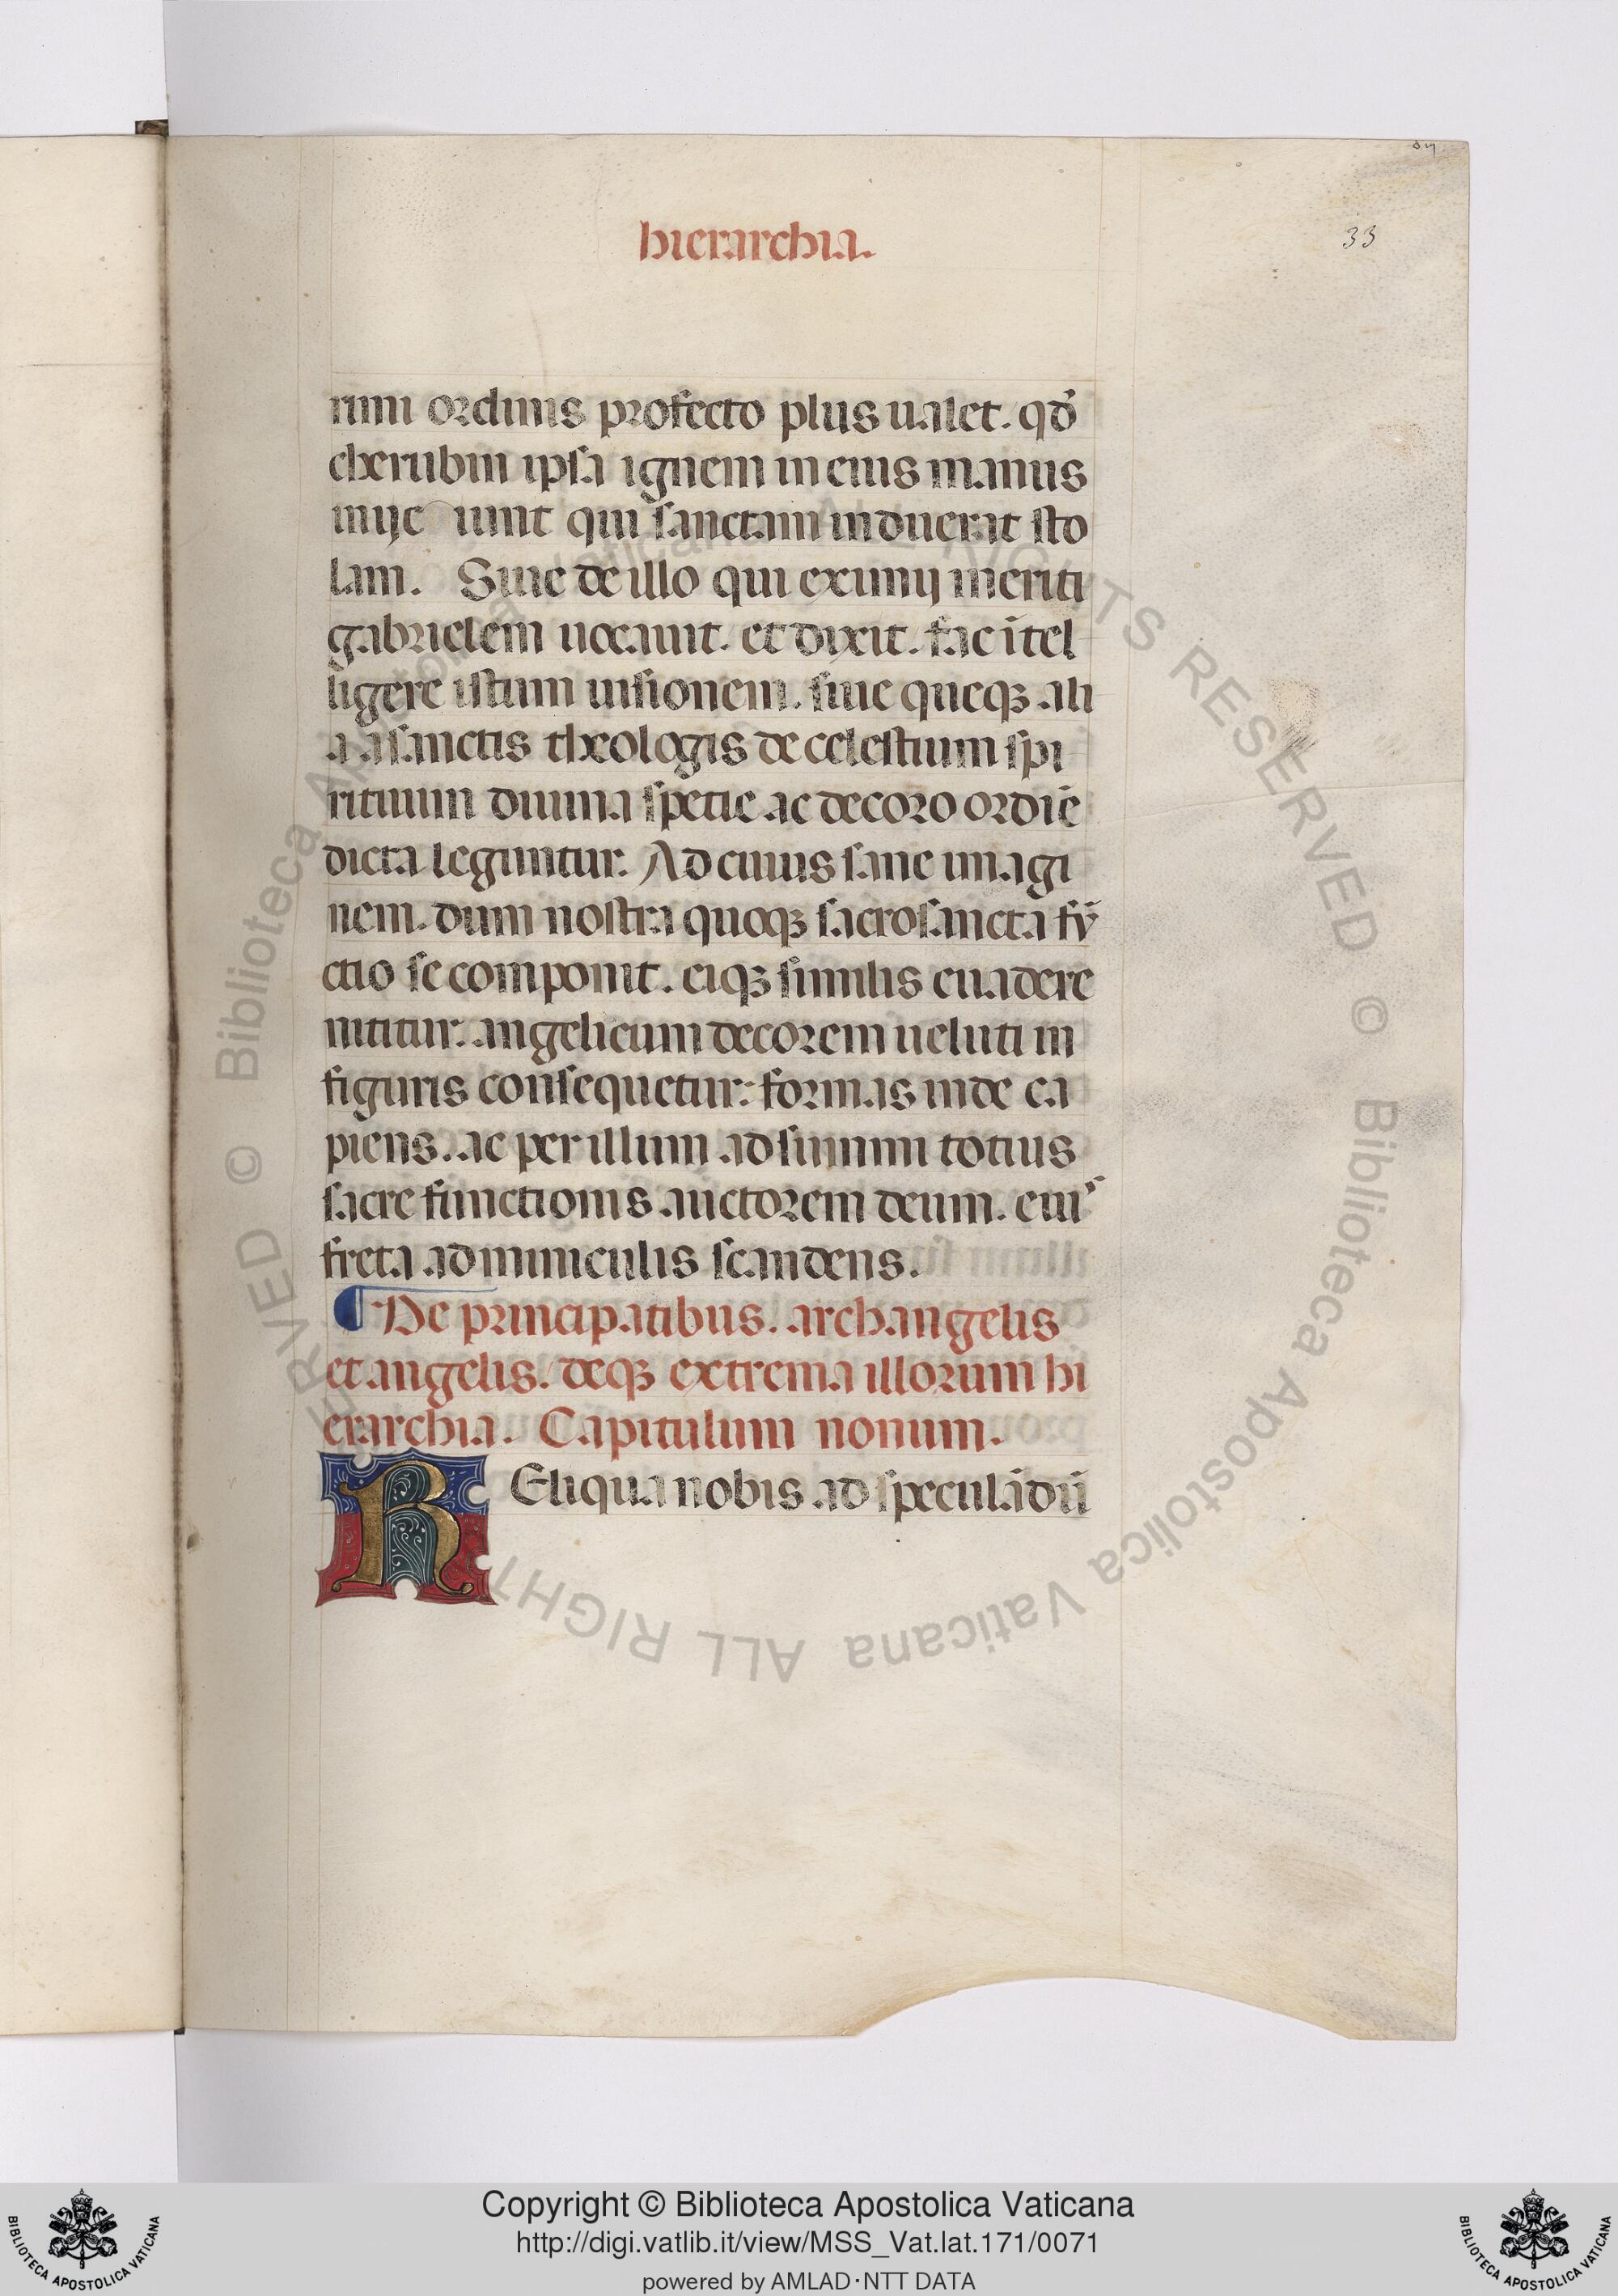 hierarchia.
33
rum ordinis profecto plus ualet. qđ
cherubin ipsa ignem in eius manus
inijc iunt qui sanctam induerat sto
lam. Siue de illo qui eximij meriti
gabrielem uocauit. et dixit. fac ītel
ligere istum uisionem. siue queqꝫ ali
a a sanctis theologis de celestium spi
rituum diuina spetie ac decoro ordīe
dicta leguntur. Ad cuius sane imagi
nem. dum nostra quoqꝫ sacrosancta fū
ctio se componit. eiqꝫ similis euadere
nititur. angelicum decorem ueluti in
figuris consequetur: formas inde ca
piens. ac per illum ad summi totius
sacre functionis auctorem deum. eiuꝰ
freta adminiculis scandens.
¶ De principatibus. archangelis
et angelis. deqꝫ extrema illorum hi
erarchia. Capitulum nonum.
REliqua nobis ad speculādū
© Biblioteca Apostolica Vaticana ALL RIGHTS RESERVED © Biblioteca Apostolica Vaticana ALL RIGHTS RESERVED
Copyright © Biblioteca Apostolica Vaticana
http://digi.vatlib.it/view/MSS_Vat.lat.171/0071
powered by AMLAD·NTT DATA
BIBLIOTECA APOSTOLICA VATICANA
BIBLIOTECA APOSTOLICA VATICANA